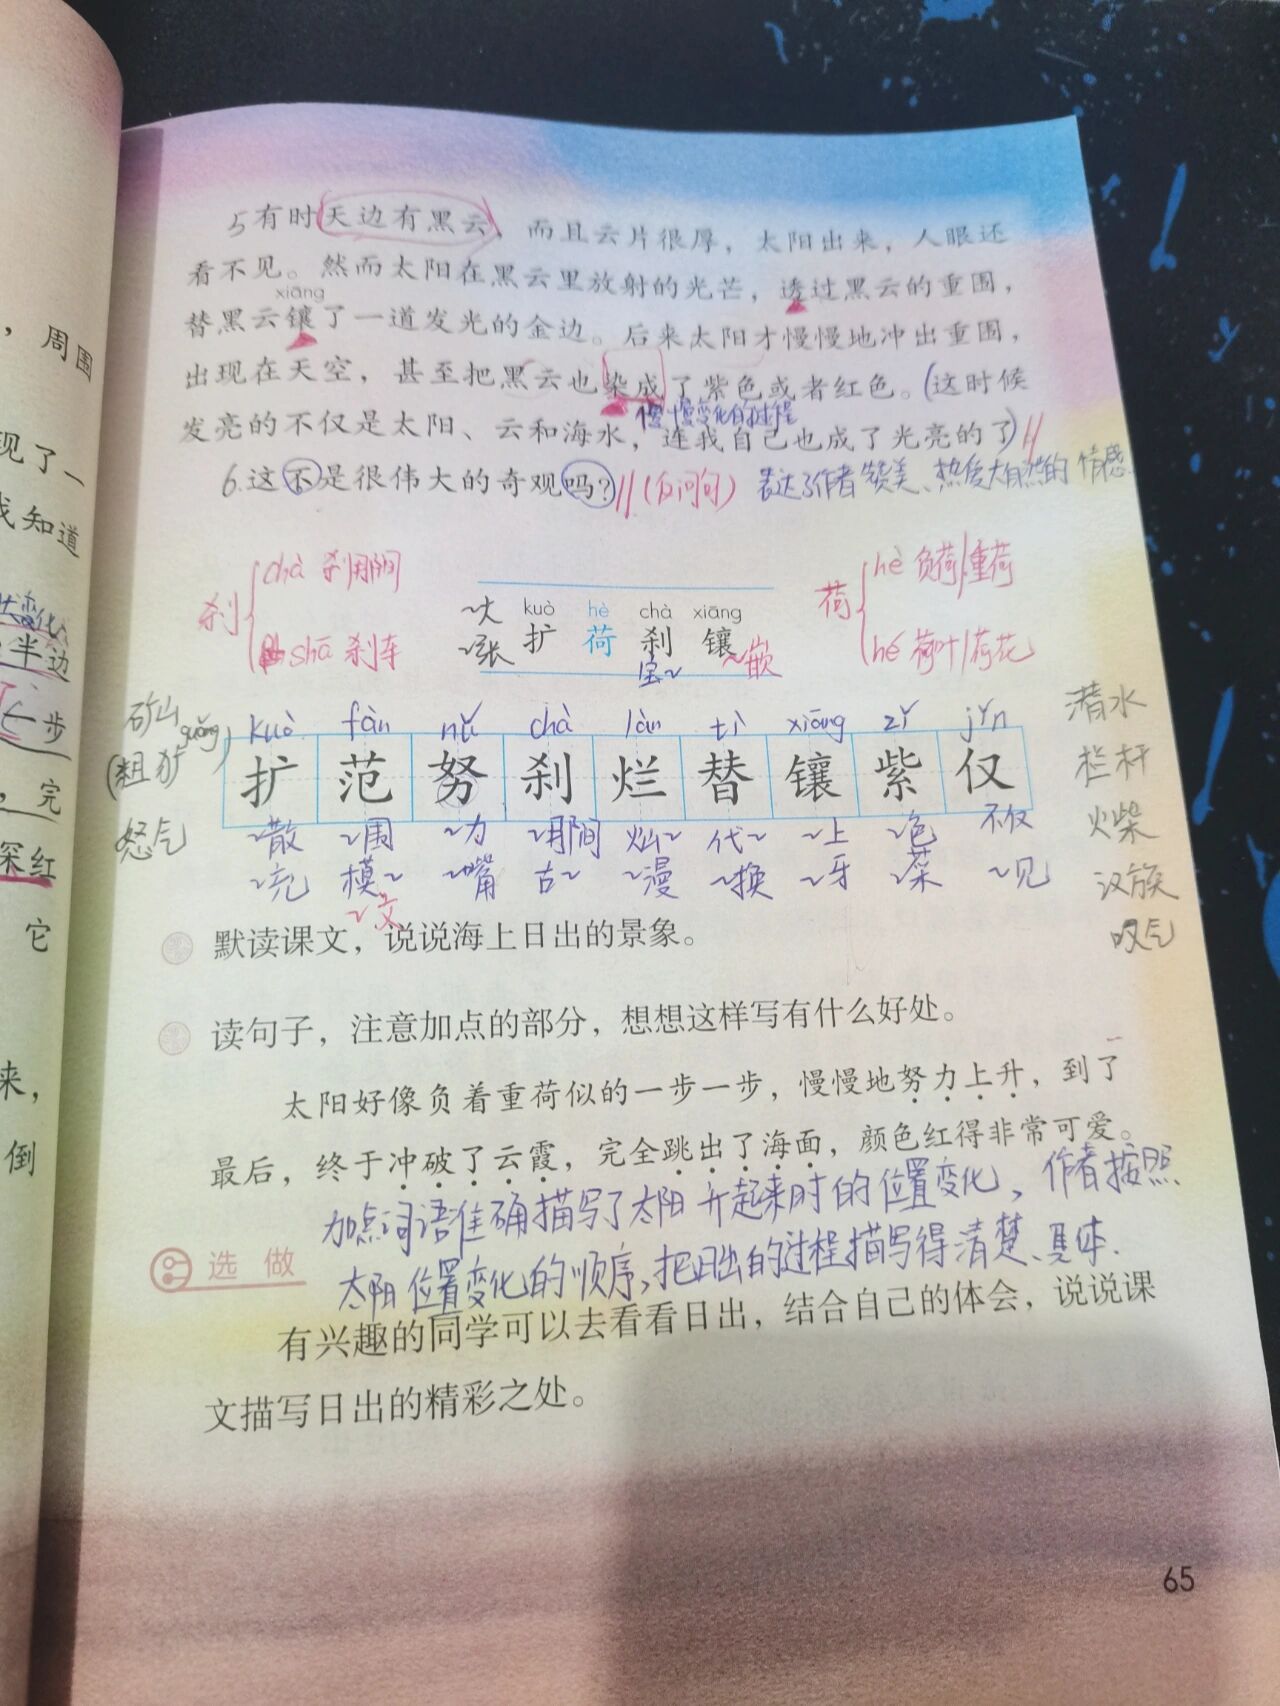 ，周围
现了一
我知道
半边
一步
，完
深红
它
来，
倒
5有时天边有黑云，而且云片很厚，太阳出来，人眼还
看不见。然而太阳在黑云里放射的光芒，透过黑云的重围，
xiāng
替黑云镶了一道发光的金边。后来太阳才慢慢地冲出重围，
出现在天空，甚至把黑云也染成了紫色或者红色。（这时候
慢慢变化的过程
发亮的不仅是太阳、云和海水，连我自己也成了光亮的了）
6.这不是很伟大的奇观吗？（反问句） 表达了作者赞美、热爱大自然的情感.
刹 chà 刹那间
shā 刹车
荷 hè 负荷|重荷
hé 荷叶|荷花
kuò hè chà xiāng
~大
~张 扩 荷 刹 镶
宝~ ~嵌
矿山
(粗犷 guǎng)
怒气
kuò fàn nǔ chà làn tì xiāng zǐ jǐn
扩 范 努 刹 烂 替 镶 紫 仅
~散 ~围 ~力 ~那间 灿~ 代~ ~上 ~色 不仅
~充 模~ ~嘴 古~ ~漫 ~换 ~牙 ~菜 ~见
潜水
栏杆
火柴
汉族
叹气
默读课文，说说海上日出的景象。
读句子，注意加点的部分，想想这样写有什么好处。
太阳好像负着重荷似的一步一步，慢慢地努力上升，到了
最后，终于冲破了云霞，完全跳出了海面，颜色红得非常可爱。
加点词语准确描写了太阳升起来时的位置变化，作者按照
太阳位置变化的顺序，把日出的过程描写得清楚、具体.
选做
有兴趣的同学可以去看看日出，结合自己的体会，说说课
文描写日出的精彩之处。
65